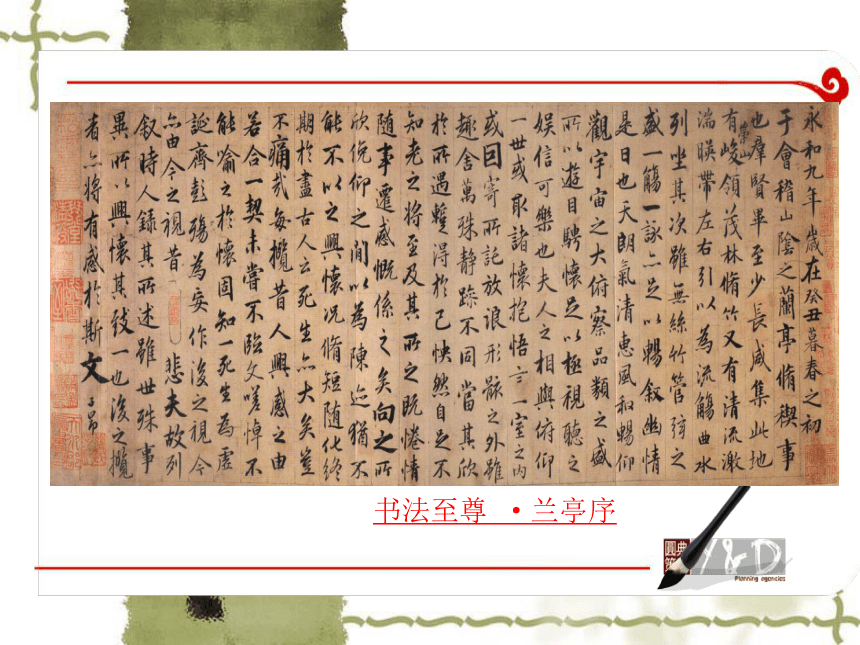 永和九年歲在癸丑暮春之初
于會稽山陰之蘭亭脩禊事
也羣賢畢至少長咸集此地
有崇山峻領茂林脩竹又有清流激
湍暎帶左右引以為流觴曲水
列坐其次雖無絲竹管弦之
盛一觴一詠亦足以暢叙幽情
是日也天朗氣清惠風和暢仰
觀宇宙之大俯察品類之盛
所以遊目騁懷足以極視聽之
娛信可樂也夫人之相與俯仰
一世或取諸懷抱悟言一室之內
或因寄所託放浪形骸之外雖
趣舍萬殊静躁不同當其欣
於所遇暫得於己怏然自足不
知老之將至及其所之既惓情
隨事遷感慨係之矣向之所
欣俛仰之間以為陳迹猶不
能不以之興懷況脩短隨化終
期於盡古人云死生亦大矣豈
不痛哉每攬昔人興感之由
若合一契未嘗不臨文嗟悼不
能喻之於懷固知一死生為虛
誕齊彭殤為妄作後之視今
亦由今之視昔 悲夫故列
叙時人錄其所述雖世殊事
異所以興懷其致一也後之攬
者亦將有感於斯文 子昂
书法至尊 ·兰亭序
Y&D
Planning agencies